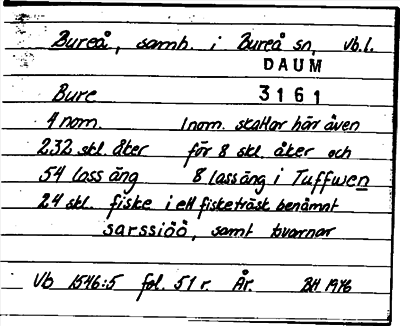 Bureå, samh. i Bureå sn, Vb.l.
DAUM
Bure 3161
4 nom. 1 nom. skattar här även
232 skl. åker för 8 skl. åker och
54 lass äng 8 lass äng i Tuffwen
24 skl. fiske i ett fisketräsk benämnt
sarssiöö, samt tvarnar
Vb 1546:5 fol. 51 r. År. BH 1976